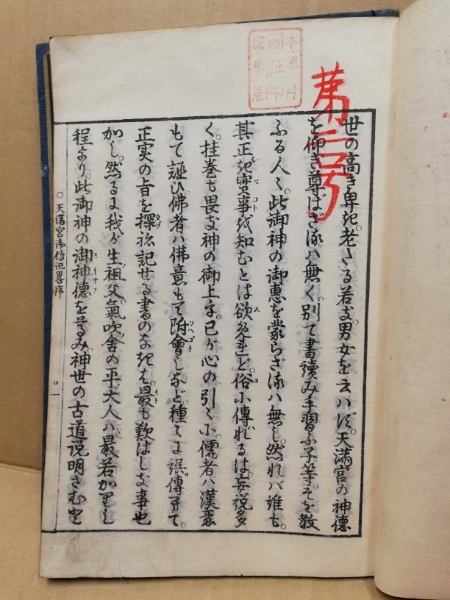 第二号
世の高き卑き老たる若き男女を云ハず。天満宮の神徳
を仰ぎ尊ばざるハ無く。別て書読み手習ふ子等そを教
ふる人々。此御神の御恵を蒙らざるハ無し。然れバ誰も。
其正き実事を知むとは欲めれど。俗に傳れるは。妄説多
く。挂巻も畏き神の御上を。己が心の引々に。儒者ハ漢意
もて誣ひ。佛者ハ佛意もて附會しなど。種々に誤傳へて。
正実の旨を探ね記せる書のなきハ。最も歎はしき事也
かし。然るに我が生祖父氣吹舎の平大人ハ。最若かりし
程より。此御神の御神徳を尊み。神世の古道説明さむと
○天満宮御傳記畧序
一